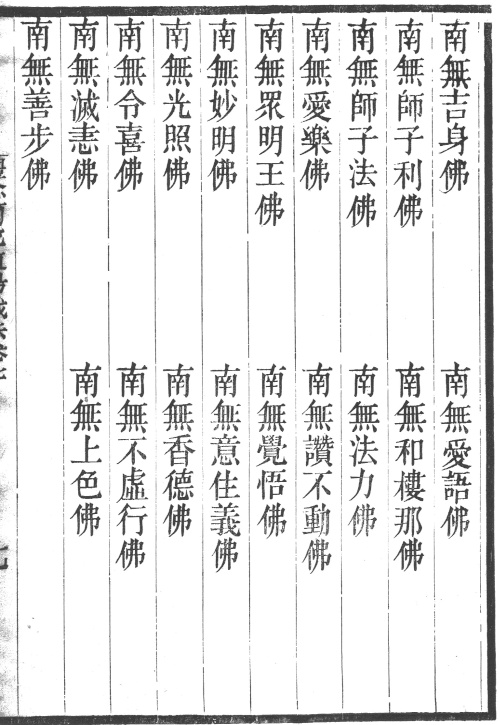 南無吉身佛　南無愛語佛
南無師子利佛　南無和樓那佛
南無師子法佛　南無法力佛
南無愛樂佛　南無讚不動佛
南無眾明王佛　南無覺悟佛
南無妙明佛　南無意住義佛
南無光照佛　南無香德佛
南無令喜佛　南無不虛行佛
南無滅恚佛　南無上色佛
南無善步佛